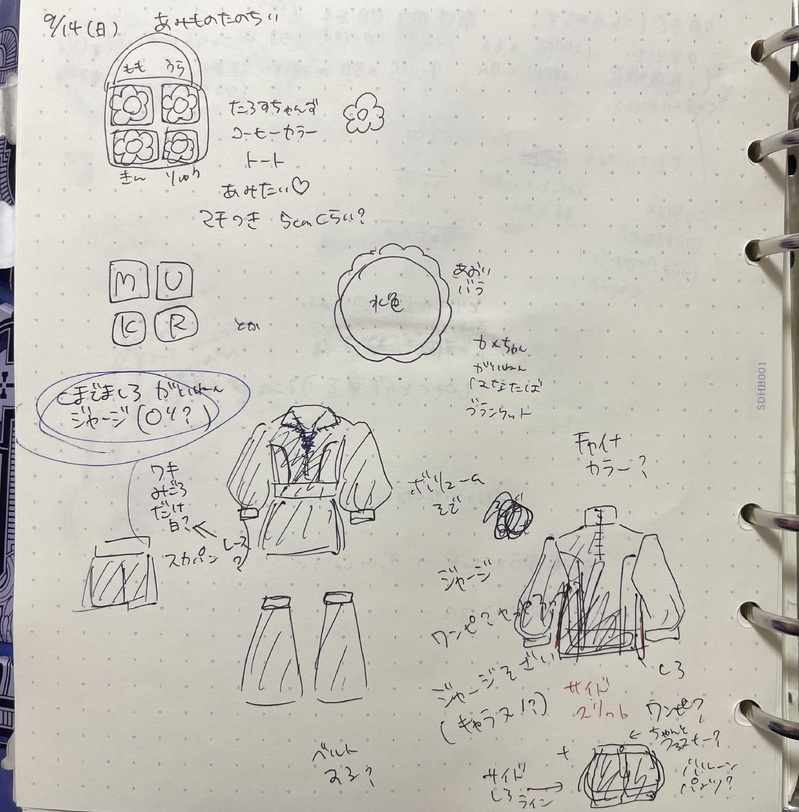 9/14(日) あみものたのちい
もも うら
きん りゅり
たろすちゃんず
コーヒーカラー
トート
あみたい♡
マチつき 5cmくらい?
M U
K R
とか
水色
あおい
バラ
カメちゃん
ブランケット
SDHB001
ジャージ(04?)
ワキ
みごろ
だけ
白?
レース
?
スカパン
ボリューム
そで
チャイナ
カラー?
ジャージ
ワンピ?
ジャージそざい
(キャラヌ!?)
しろ
サイド
スリット
ワンピ?
ちゃんと
ファスナー?
バルーン
パンツ?
+
サイド
しろ ライン
ベルト
ある?